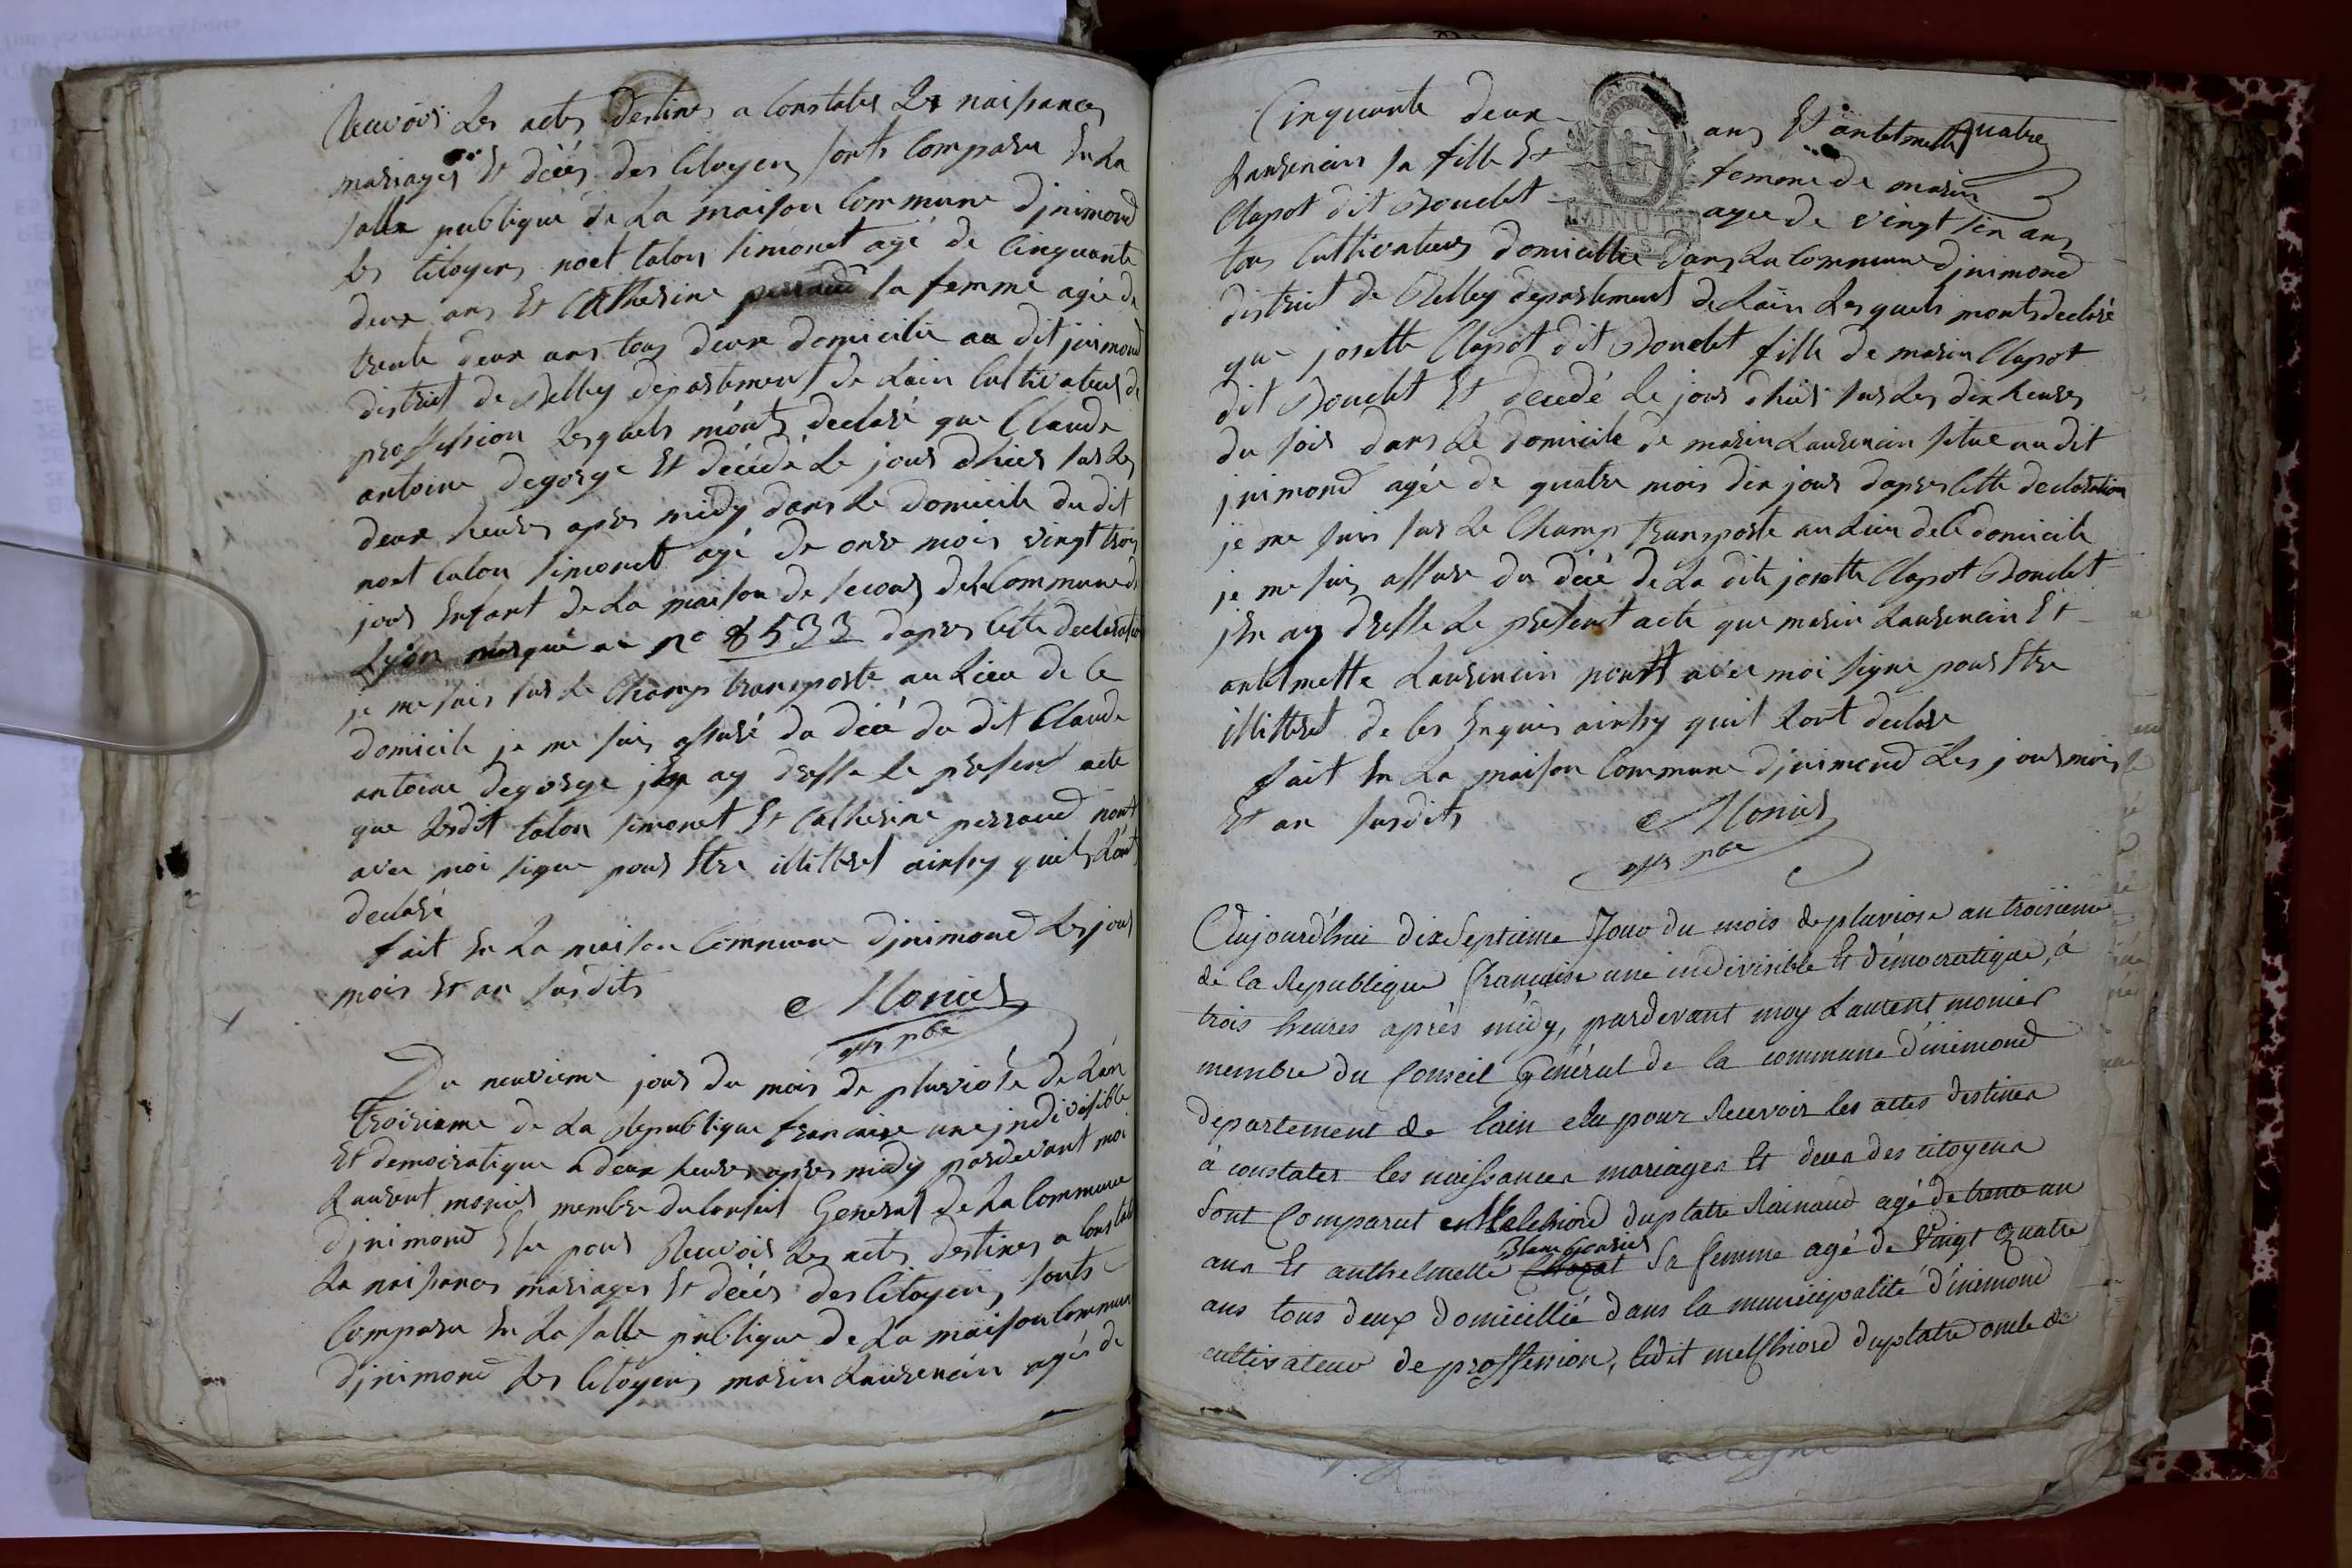 Recevoir Les actes destines a Constater Les naissances
mariages Et décés des Citoyens sonts Comparu En La
salle publique de La maison Commune djnimond
les Citoyens noel talon simonet agé de Cinquante
deux ans Et Catherine perraud sa femme agée de
trente deux ans tous deux domicilié au dit jnimond
district de Belley departement de Lain Cultivateurs de
proffession Lesquels m'ont declaré que Claude
antoine degorge Et décédé Le jour dhier sur Les
deux heures apres midy dans Le domicile du dit
noel talon simonet agé de onze mois vingt trois
jours Enfant de La maison de secours de la Commune de
Lyon marqué au no 8533 dapres Cette declaration
je me suis sur Le Champ transporté au Lieu de Ce
domicile je me suis assuré du décé du dit Claude
antoine degorge jen ay dressé Le present acte
que Lesdit talon simonet Et Catherine perraud nont
avec moi signe pour Etre illittéré ainsy quils Lont
declaré
fait En La maison Commune djnimond Les jour
mois Et an susdits
Monier
offr pbc
Du neuvieme jour du mois de pluviose de Lan
troisieme de La Republique francaise une jndivisible
Et democratique a deux heures apres midy pardevant moi
Laurent monier membre du Conseil General de La Commune
djnimond Elu pour Recevoir Les actes destines a Constater
La naissances mariages Et décés des Citoyens sonts
Comparu En La salle publique de La maison Commune
djnimond Les Citoyens marin Laurencin agés de
Cinquante deux ans Et antelmette quatre
Laurencin sa fille Et femme de marin
Clapot dit Boudet agée de vingt six ans
tous Cultivateurs domicillié dans La Commune djnimond
district de Belley departement de Lain Lesquels monts declaré
que josette Clapot dit Boudet fille de marin Clapot
dit Boudet Et décédé Le jour dhier sur Les dix heures
du soir dans Le domicile de marin Laurencin situé au dit
jnimond agée de quatre mois dix jours dapres Cette declaration
je me suis sur Le Champ transporté au Lieu de Ce domicile
je me suis assuré du décé de La dite josette Clapot Boudet
jEn ay dressé Le present acte que marin Laurencin Et
antelmette Laurencin nonts avec moi signe pour Etre
illittéré de Ces Enquis ainsy quil Lont declaré
fait En La maison Commune djnimond Les jour mois
Et an susdits
Monier
offr pbc
Aujourd'hui dixSeptieme Jour du mois de pluviose an troisieme
de la Republique francaise une indivisible Et démocratique, à
trois heures après midy, pardevant moy Laurent monier
membre du Conseil Général de la commune d'inimond
département de lain elu pour Recevoir les actes destines
à constater les naissances mariages Et deces des citoyens
Sont Comparut melchiord duplatre Rainaud agé de trente un
Blanc
ans Et anthelmette Sa femme agé de Vingt Quatre
ans tous deux domicillié dans la municipalité d'inimond
cultivateur de proffession, ledit melchiord duplatre oncle de